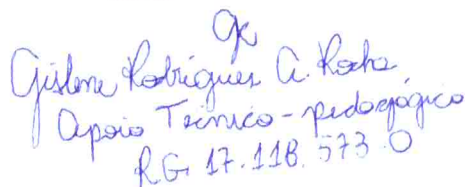 Gislene Rodrigues A. Rocha
Apoio Técnico-pedagógico
RG. 17.118.573.0